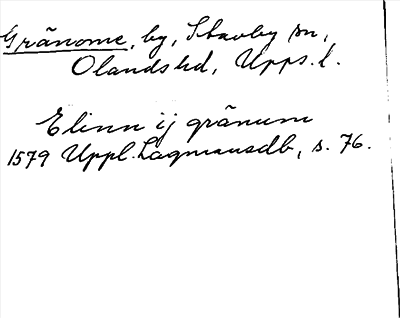 Gränome, by, Stavby sn,
Olands hd, Upps. l.
Elinn ij gränum
1579 Uppl. Lagmansdb, s. 76.